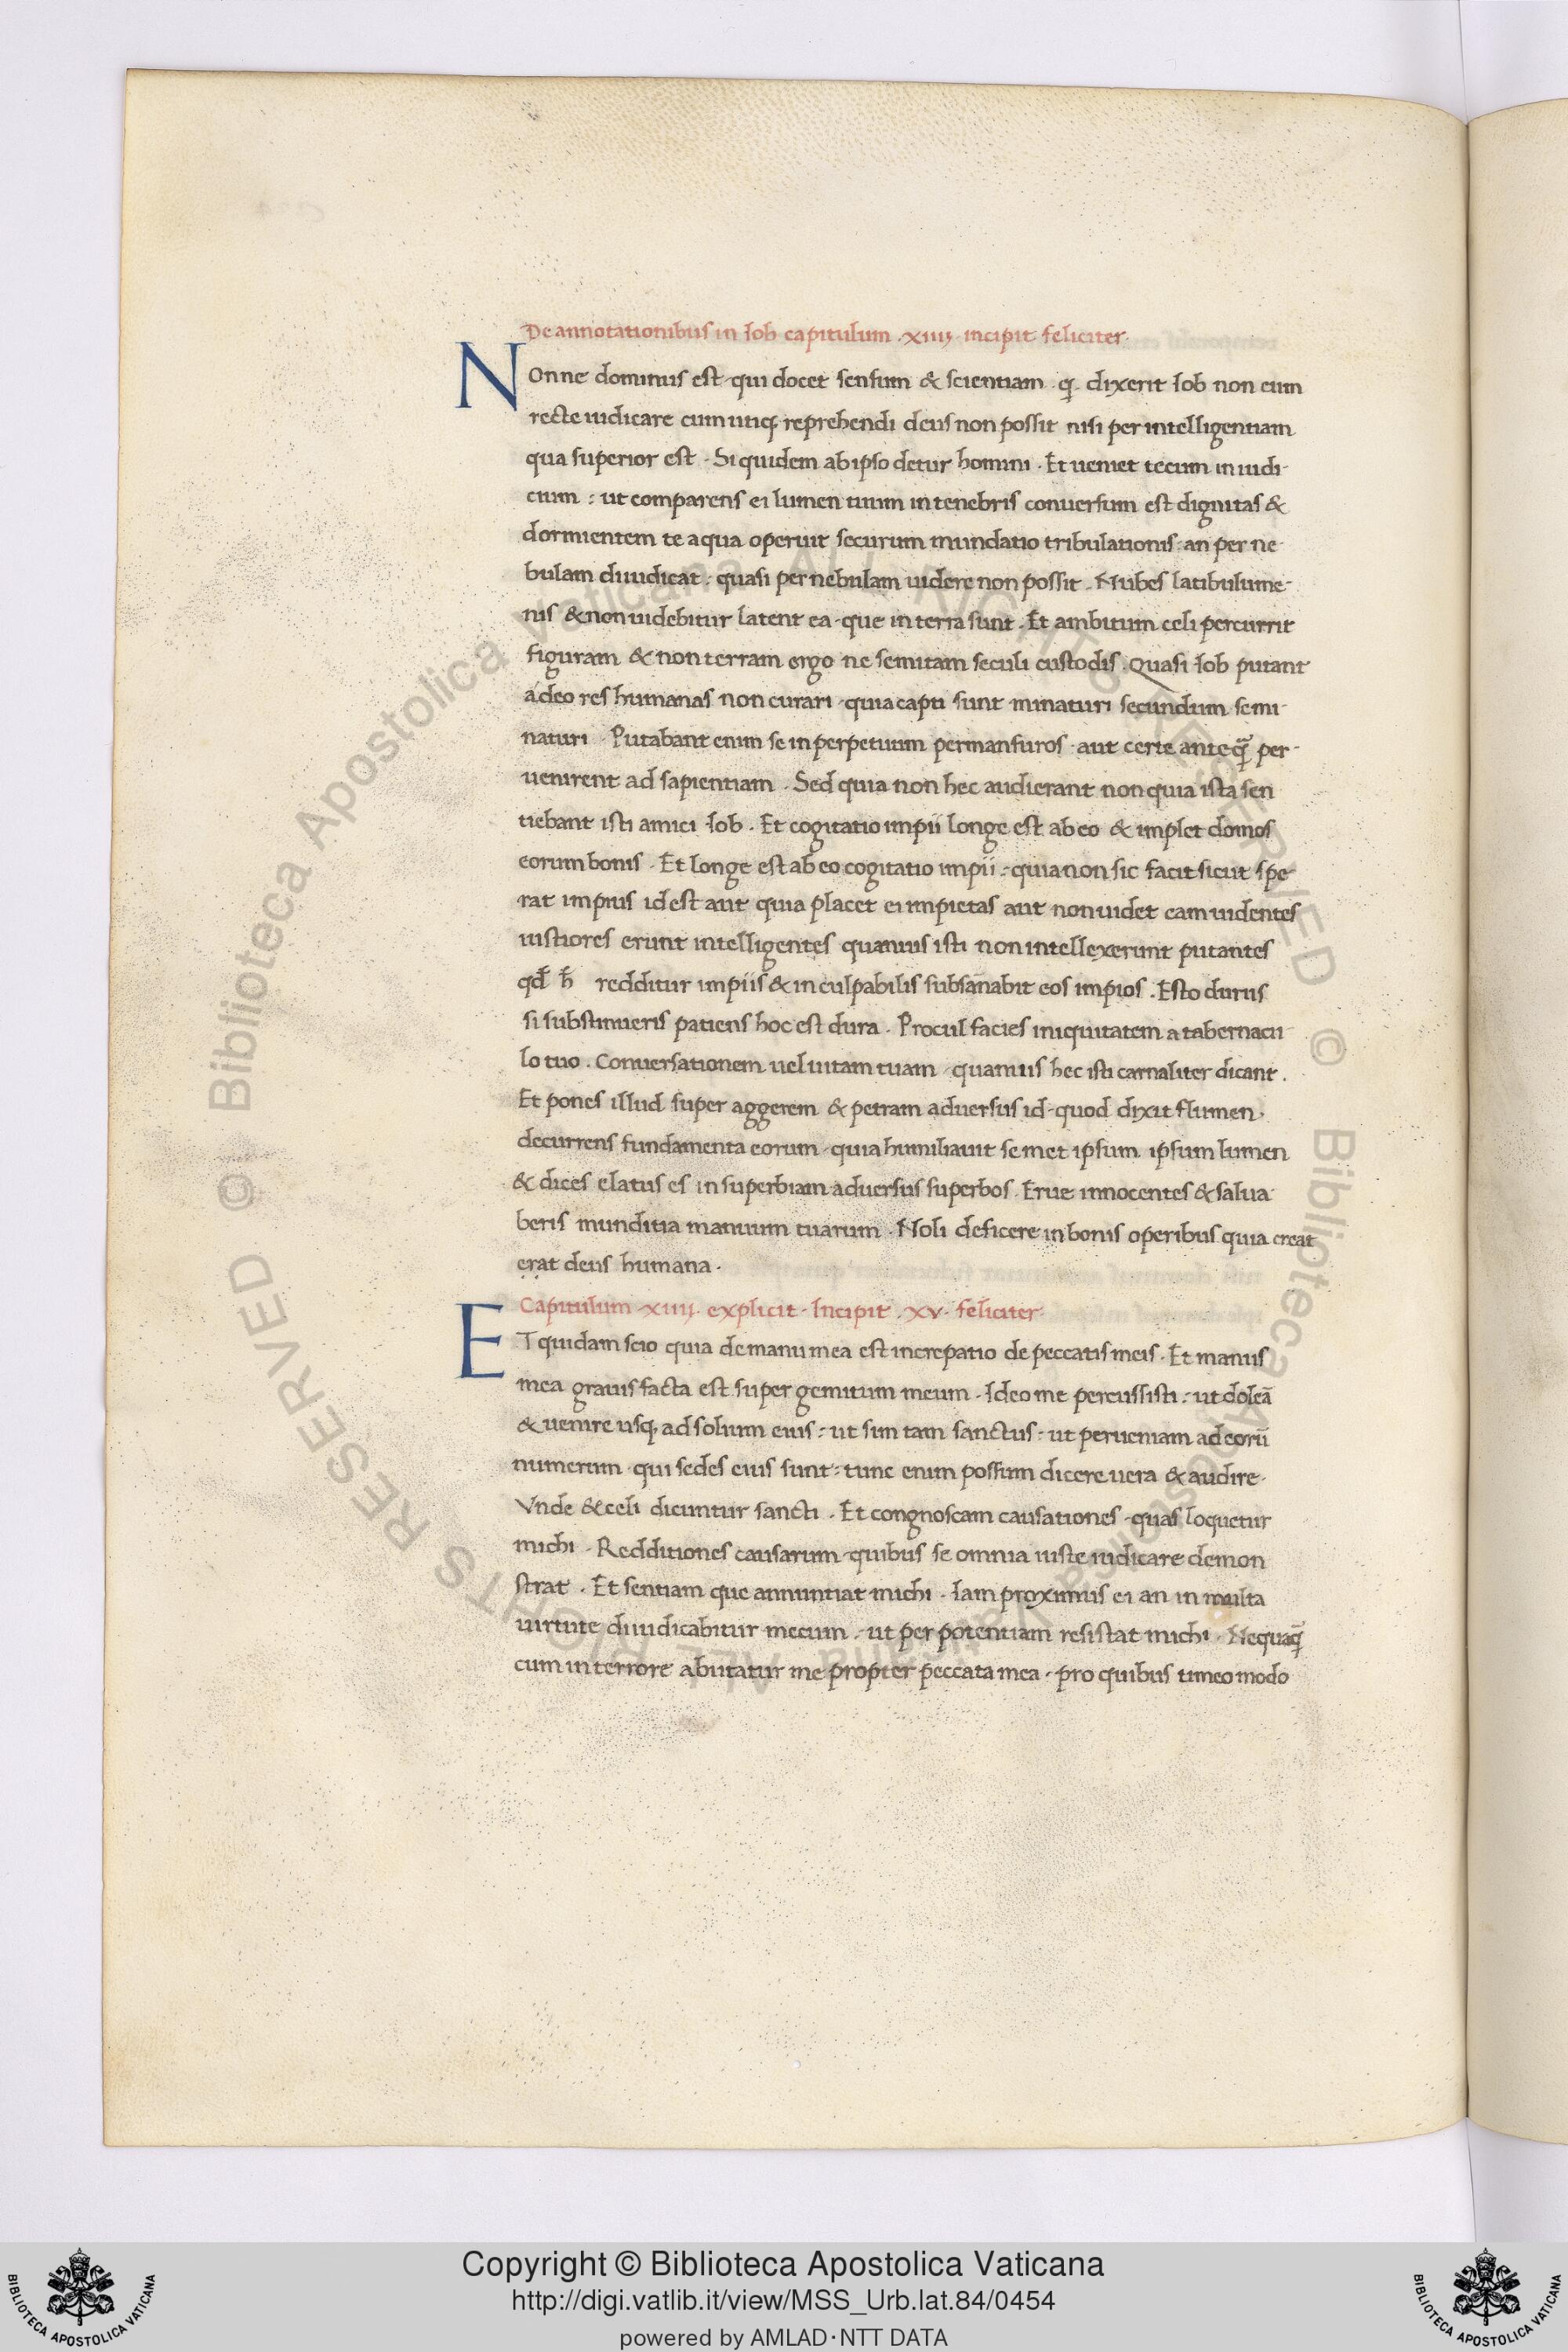 De annotationibus in Iob capitulum . xiiij . incipit feliciter .
NOnne dominus est · qui docet sensum & scientiam . q. dixerit Iob non eum
recte iudicare cum utiq; reprehendi deus non possit nisi per intelligentiam
qua superior est . Si quidem ab ipso detur homini . Et ueniet tecum in iudi-
cium : ut comparens ei lumen tuum in tenebris conuersum est dignitas &
dormientem te aqua operuit securum inundatio tribulationis : an per ne
bulam diuidicat : quasi per nebulam uidere non possit . Nubes latibulum e-
nis & non uidebitur latent ea · que in terra sunt . Et ambitum celi percurrit
figuram & non terram ergo ne semitam seculi custodis . Quasi Iob putant
a deo res humanas non curari · quia capti sunt minaturi secundum semi-
naturi . Putabant enim se in perpetuum permansuros · aut certe anteq̃ per-
uenirent ad sapientiam . Sed quia non hec audierant non quia ista sen
tiebant isti amici Iob . Et cogitatio impii longe est ab eo & implet domos
eorum bonis . Et longe est ab eo cogitatio impii : quia non sic facit sicut spe
rat impius id est aut quia placet ei impietas aut non uidet eam uidentes
iustiores erunt intelligentes quamuis isti non intellexerunt putantes
qd̃ h̃ redditur impiis & inculpabilis subsãnabit eos impios . Esto durus
si substinueris patiens hoc est dura . Procul facies iniquitatem a tabernacu
lo tuo . Conuersationem uel uitam tuam · quamuis hec isti carnaliter dicant .
Et pones illud super aggerem & petram aduersus id · quod dixit flumen ·
decurrens fundamenta eorum · quia humiliauit semet ipsum ipsum lumen
& dices elatus es in superbiam aduersus superbos . Erue innocentes & salua
beris munditia manuum tuarum . Noli deficere in bonis operibus quia creat
erat deus humana .
Capitulum . xiiij . explicit . Incipit . xv . feliciter .
ET quidam scio quia de manu mea est increpatio de peccatis meis . Et manus
mea grauis facta est super gemitum meum . Ideo me percussisti : ut doleã
& uenire usq; ad solum eius : ut sim tam sanctus : ut perueniam ad eorũ
numerum · qui sedes eius sunt : tunc enim possum dicere uera & audire .
Vnde & celi dicuntur sancti . Et congnoscam causationes · quas loquetur
michi . Redditiones causarum · quibus se omnia iuste iudicare demon
strat . Et sentiam que annuntiat michi . Iam proximus ei an in multa
uirtute diiudicabitur mecum : ut per potentiam resistat michi . Nequaq̃
cum in terrore abutatur me propter peccata mea · pro quibus timeo modo
Copyright © Biblioteca Apostolica Vaticana
http://digi.vatlib.it/view/MSS_Urb.lat.84/0454
powered by AMLAD·NTT DATA